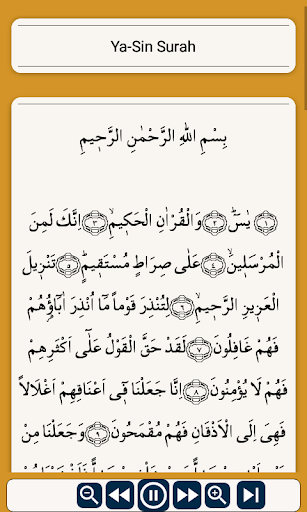 Ya-Sin Surah
بِسْمِ اللهِ الرَّحْمٰنِ الرَّح۪يمِ
﴿١﴾ يٰسٓ ﴿٢﴾ وَالْقُرْاٰنِ الْحَك۪يمِۙ ﴿٣﴾ اِنَّكَ لَمِنَ
الْمُرْسَل۪ينَۙ ﴿٤﴾ عَلٰى صِرَاطٍ مُسْتَق۪يمٍۜ ﴿٥﴾ تَنْز۪يلَ
الْعَز۪يزِ الرَّح۪يمِۙ ﴿٦﴾ لِتُنْذِرَ قَوْماً مَٓا اُنْذِرَ اٰبَٓاؤُ۬هُمْ
فَهُمْ غَافِلُونَ ﴿٧﴾ لَقَدْ حَقَّ الْقَوْلُ عَلٰٓى اَكْثَرِهِمْ
فَهُمْ لَا يُؤْمِنُونَ ﴿٨﴾ اِنَّا جَعَلْنَا ف۪ٓي اَعْنَاقِهِمْ اَغْلَالاً
فَهِيَ اِلَى الْاَذْقَانِ فَهُمْ مُقْمَحُونَ ﴿٩﴾ وَجَعَلْنَا مِنْ